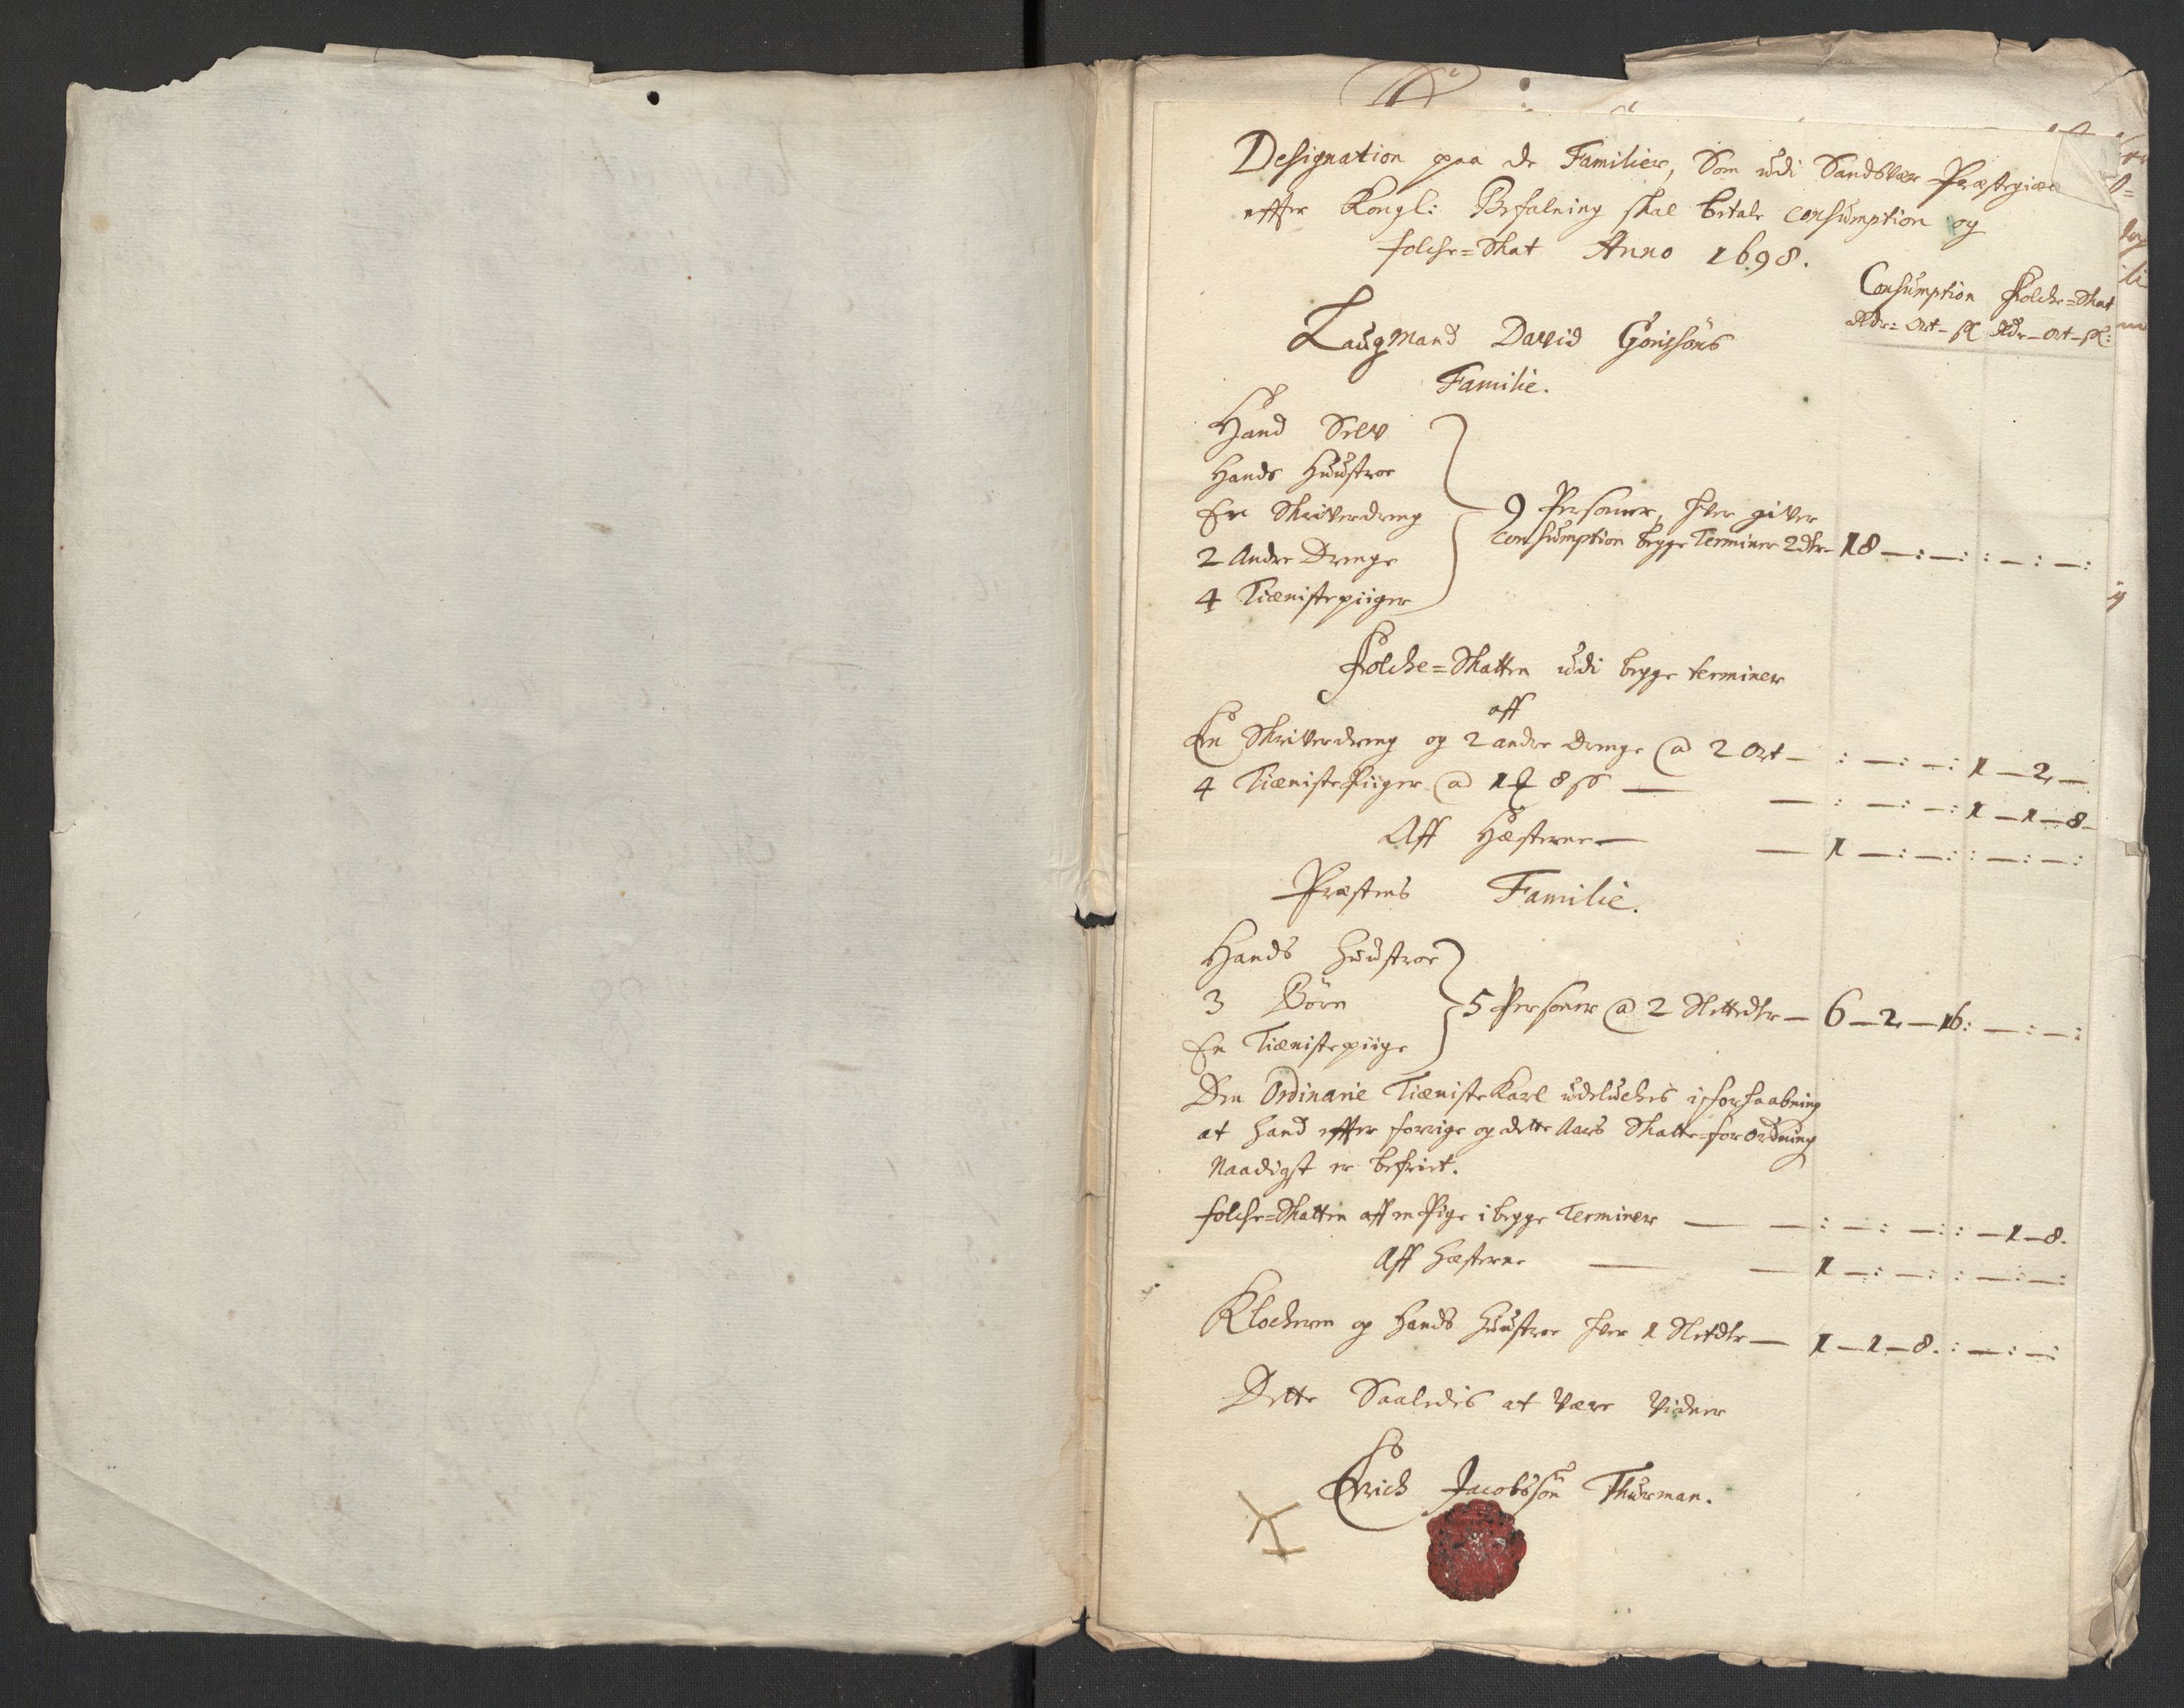 Designation paa de Familier, Som udi Sandsvær Præstegield
effter Kongl: Befalning skal betale Consumption og
folche=Skat Anno 1698.
Consumption Folche=Skat
Rdr: Ort- ſſ Rdr-Ort-ſſ:
Laugmand David Görissöns
Familie.
Hand Selv
Hands Huustroe
En Skriverdreng
2 Andre Drenge
4 Tienistepiiger
9 Personer, hver giver
Consumption begge Terminer 2dlr- 18 -:-: : -: -:
Folche=Skatten udi begge terminer
aff
En Skriverdreng og 2 andre drenge @ 2 Ort - : -: -: 1 - 2 -
4 TienistePiiger @ 1 8 ſſ - - : -: -: 1 - 1 - 8 -
Aff Hæsterne - - 1 -: -: : -: -:
Præstens Familie.
Hands Huustroe
3 Börn
En Tienistepiige
5 Personer @ 2 Slettedlr - 6 - 2 - 16: -: -:
Den Ordinarie Tieniste Karl udeluches i forhaabning
at hand effter forrige og dette Aars Skatte-forordning
Naadigst er befriet.
folche=Skatten aff en Pige i begge Terminer - -: -: -: : - 1 - 8.
Aff Hæsterne - - 1 -: -: : -: -:
Klocheren og Hands Huustroe hver 1 Sletdlr - 1 - 1 - 8. : -: -:
Dette Saaledis at være Vidner
Erich Jacobssön Thurman.